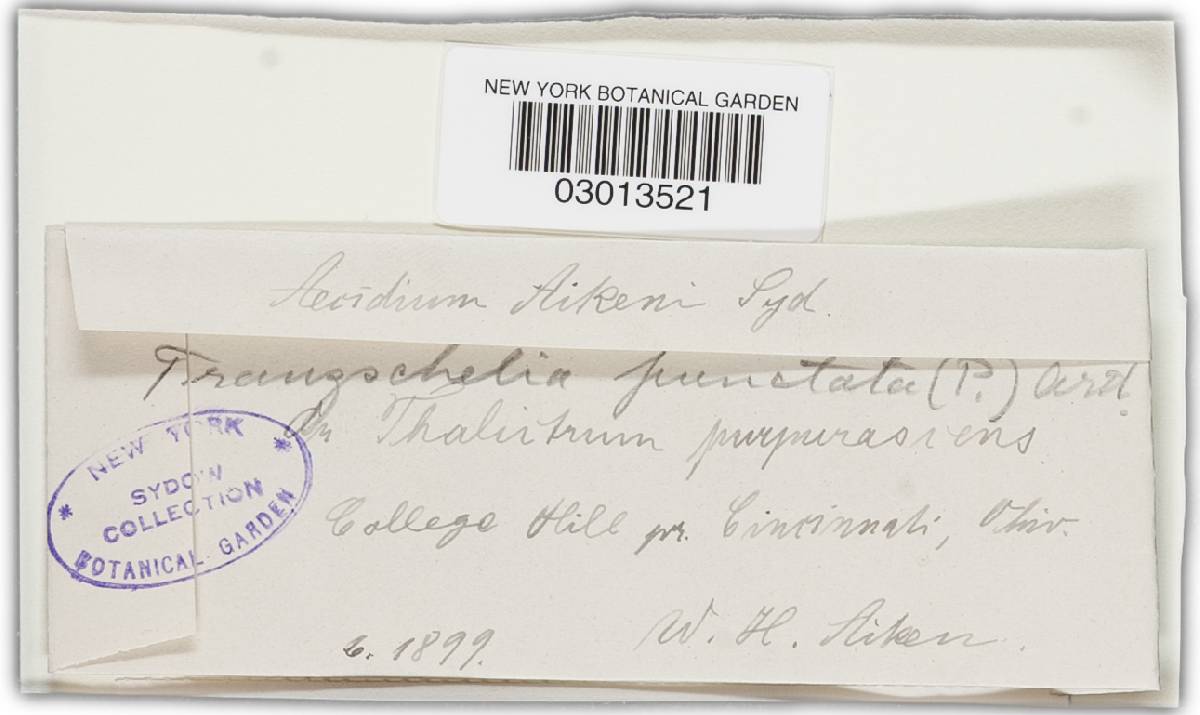 NEW YORK BOTANICAL GARDEN
03013521
Aecidium Aikeni Syd.
Tranzschelia punctata (P.) Ard.
On Thalictrum purpurascens
College Hill pr. Cincinnati, Ohio.
6. 1899.
W. H. Aiken.
* NEW YORK *
SYDOW
COLLECTION
BOTANICAL GARDEN